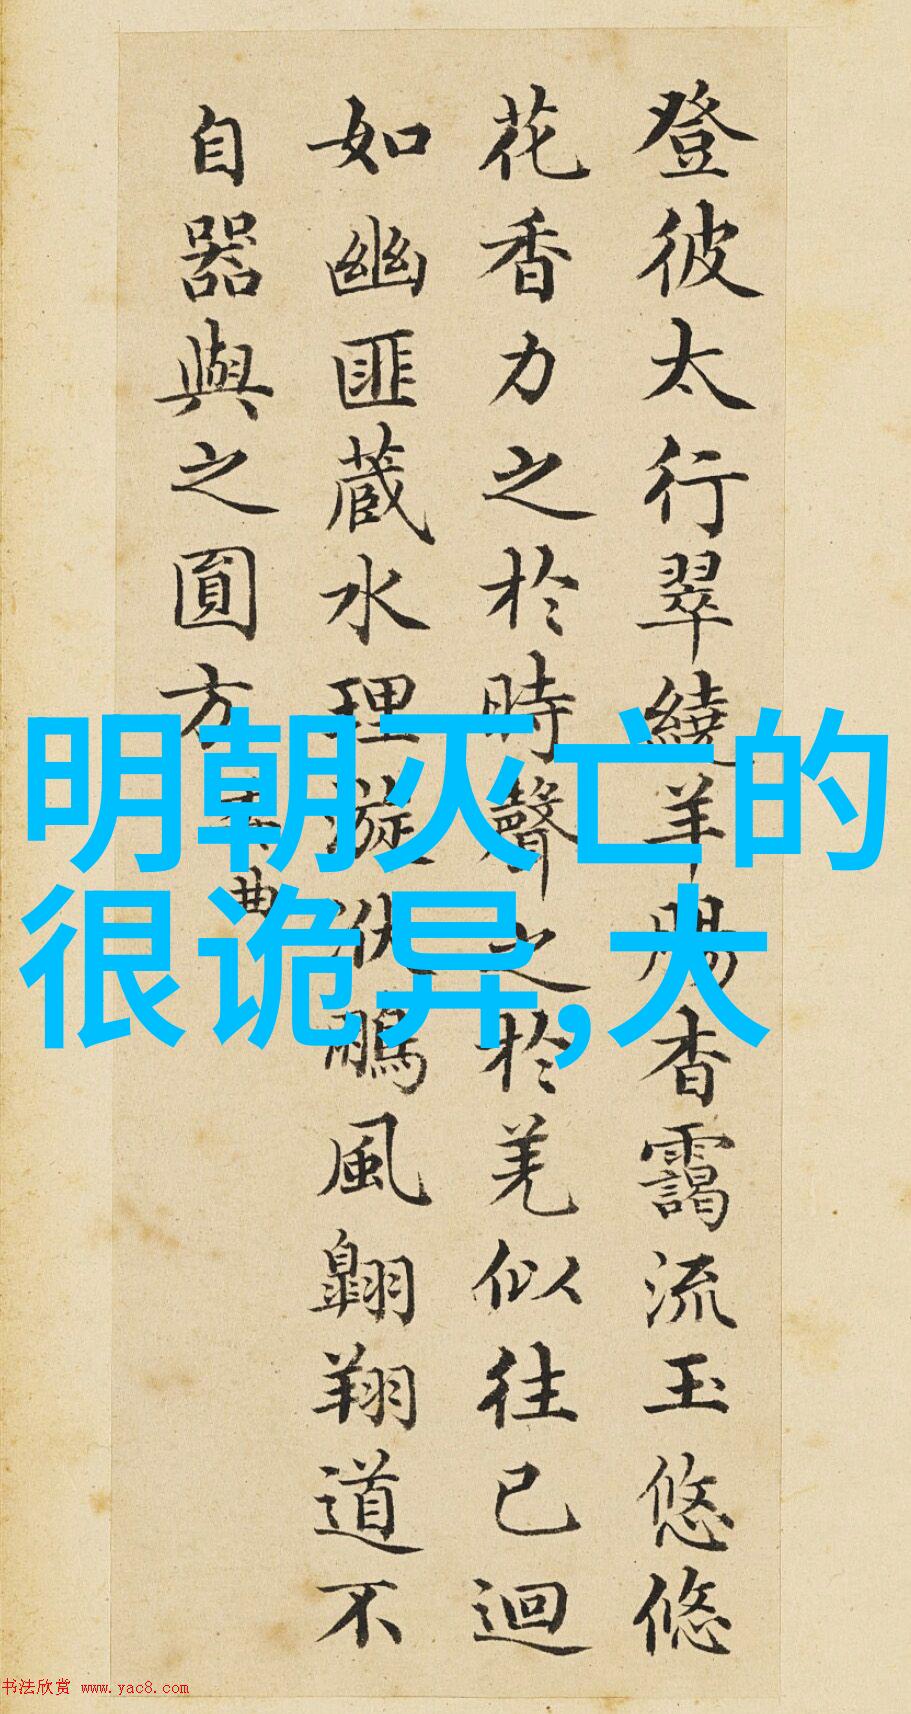 登彼太行翠繞羊腸杳靄流玉悠悠
花香力之於時聲之於羌似往已迴
如幽匪蔵水理漩洑鵬風翺翔道不
自器與之圓方
曲
明朝灭亡的
很诡异,大
书法欣赏 www.yac8.com